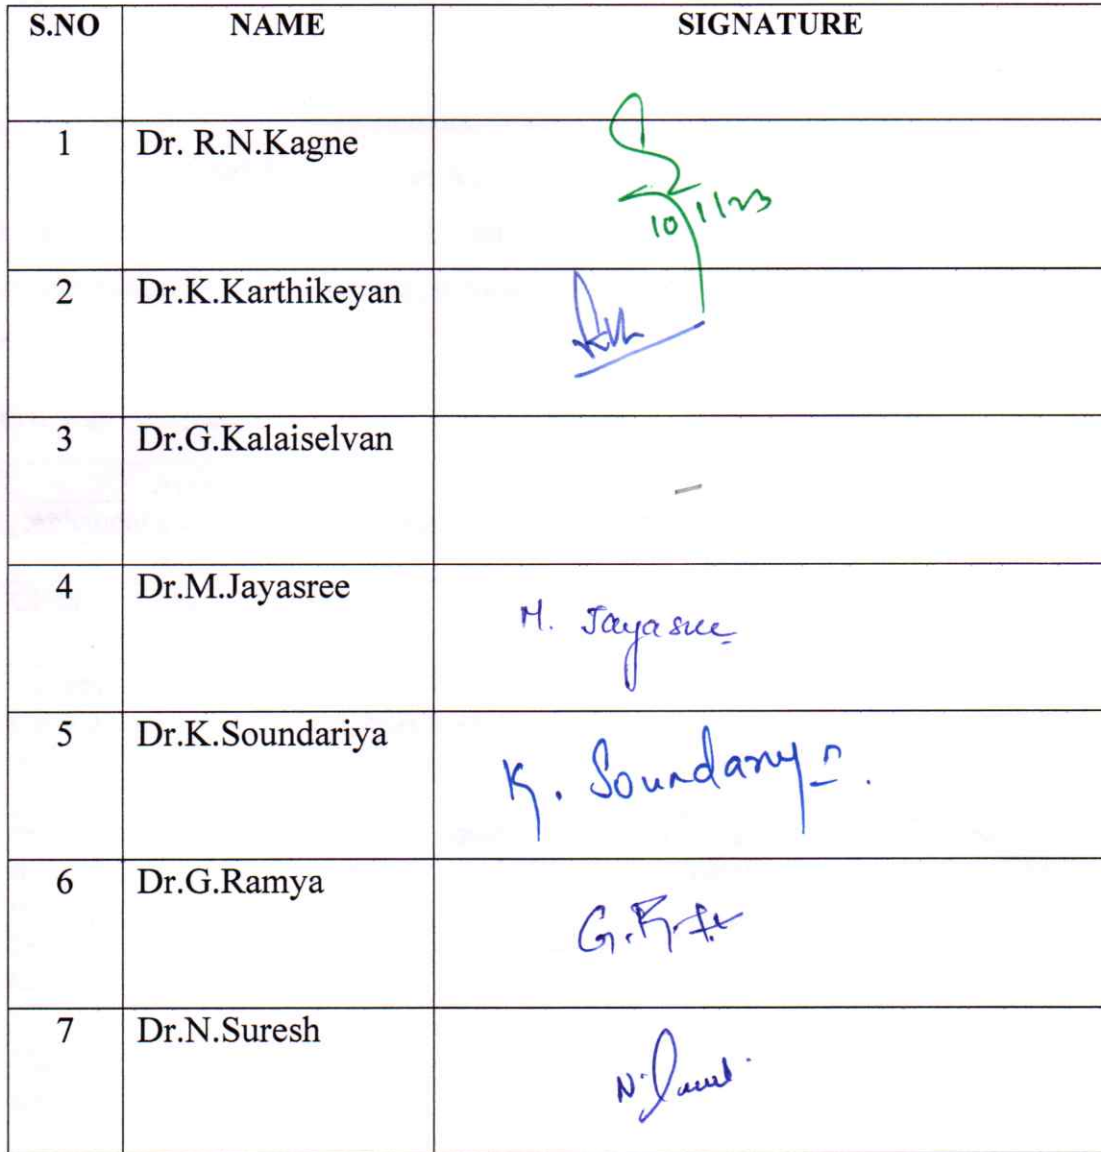 S.NO NAME SIGNATURE
1 Dr. R.N.Kagne
10/1/23
2 Dr.K.Karthikeyan
3 Dr.G.Kalaiselvan –
4 Dr.M.Jayasree M. Jayasree
5 Dr.K.Soundariya K. Soundariya.
6 Dr.G.Ramya
7 Dr.N.Suresh